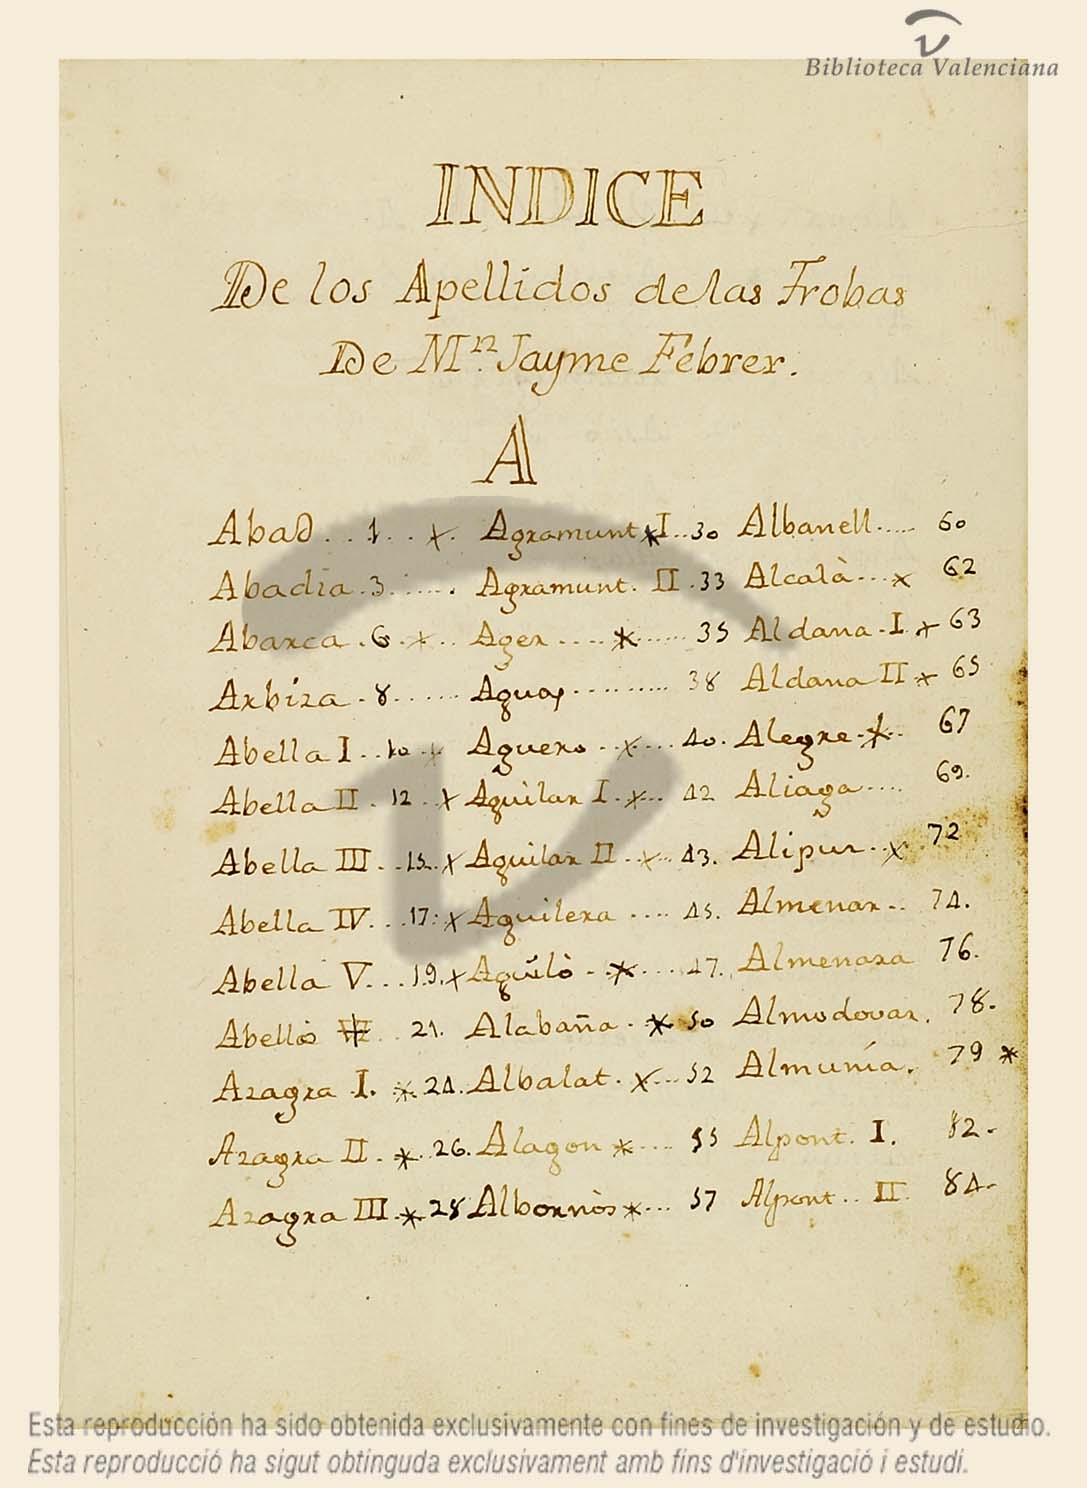 Biblioteca Valenciana
INDICE
De los Apellidos de las Trobas
De Mn. Jayme Febrer.
A
Abad . . 1 . . x . Agramunt * I . . 30 Albanell ..... 60
Abadia . 3 ...... Agramunt . II . 33 Alcalà ... x 62
Abarca . 6 . x . . Ager .... * ...... 35 Aldana . I . x 63
Arbiza . 8 ...... Aguay .......... 38 Aldana II x 65
Abella I . . 10 x Aguero . . x .... 40 . Alegre . x . . 67
Abella II . 12 . x Aguilar I . x ... 42 Aliaga .... 69.
Abella III . . 15 . x Aguilar II . . x . . 43. Alipur . . x . 72
Abella IV . . . 17 : x Aguilera .... 45. Almenar . . 74.
Abella V . . . 19 . x Aguilò . . * .... 47. Almenara 76.
Abellò . . 21. Alabaña . * 50 Almodovar . 78.
Azagra I. * . 24. Albalat . x ... 52 Almunía . 79 *
Azagra II . * . 26. Alagon * .... 55 Alpont . I . 82.
Azagra III . * 28 Albornòs * ... 57 Alpont . . II 84.
Esta reproducción ha sido obtenida exclusivamente con fines de investigación y de estudio.
Esta reproducció ha sigut obtinguda exclusivament amb fins d'investigació i estudi.